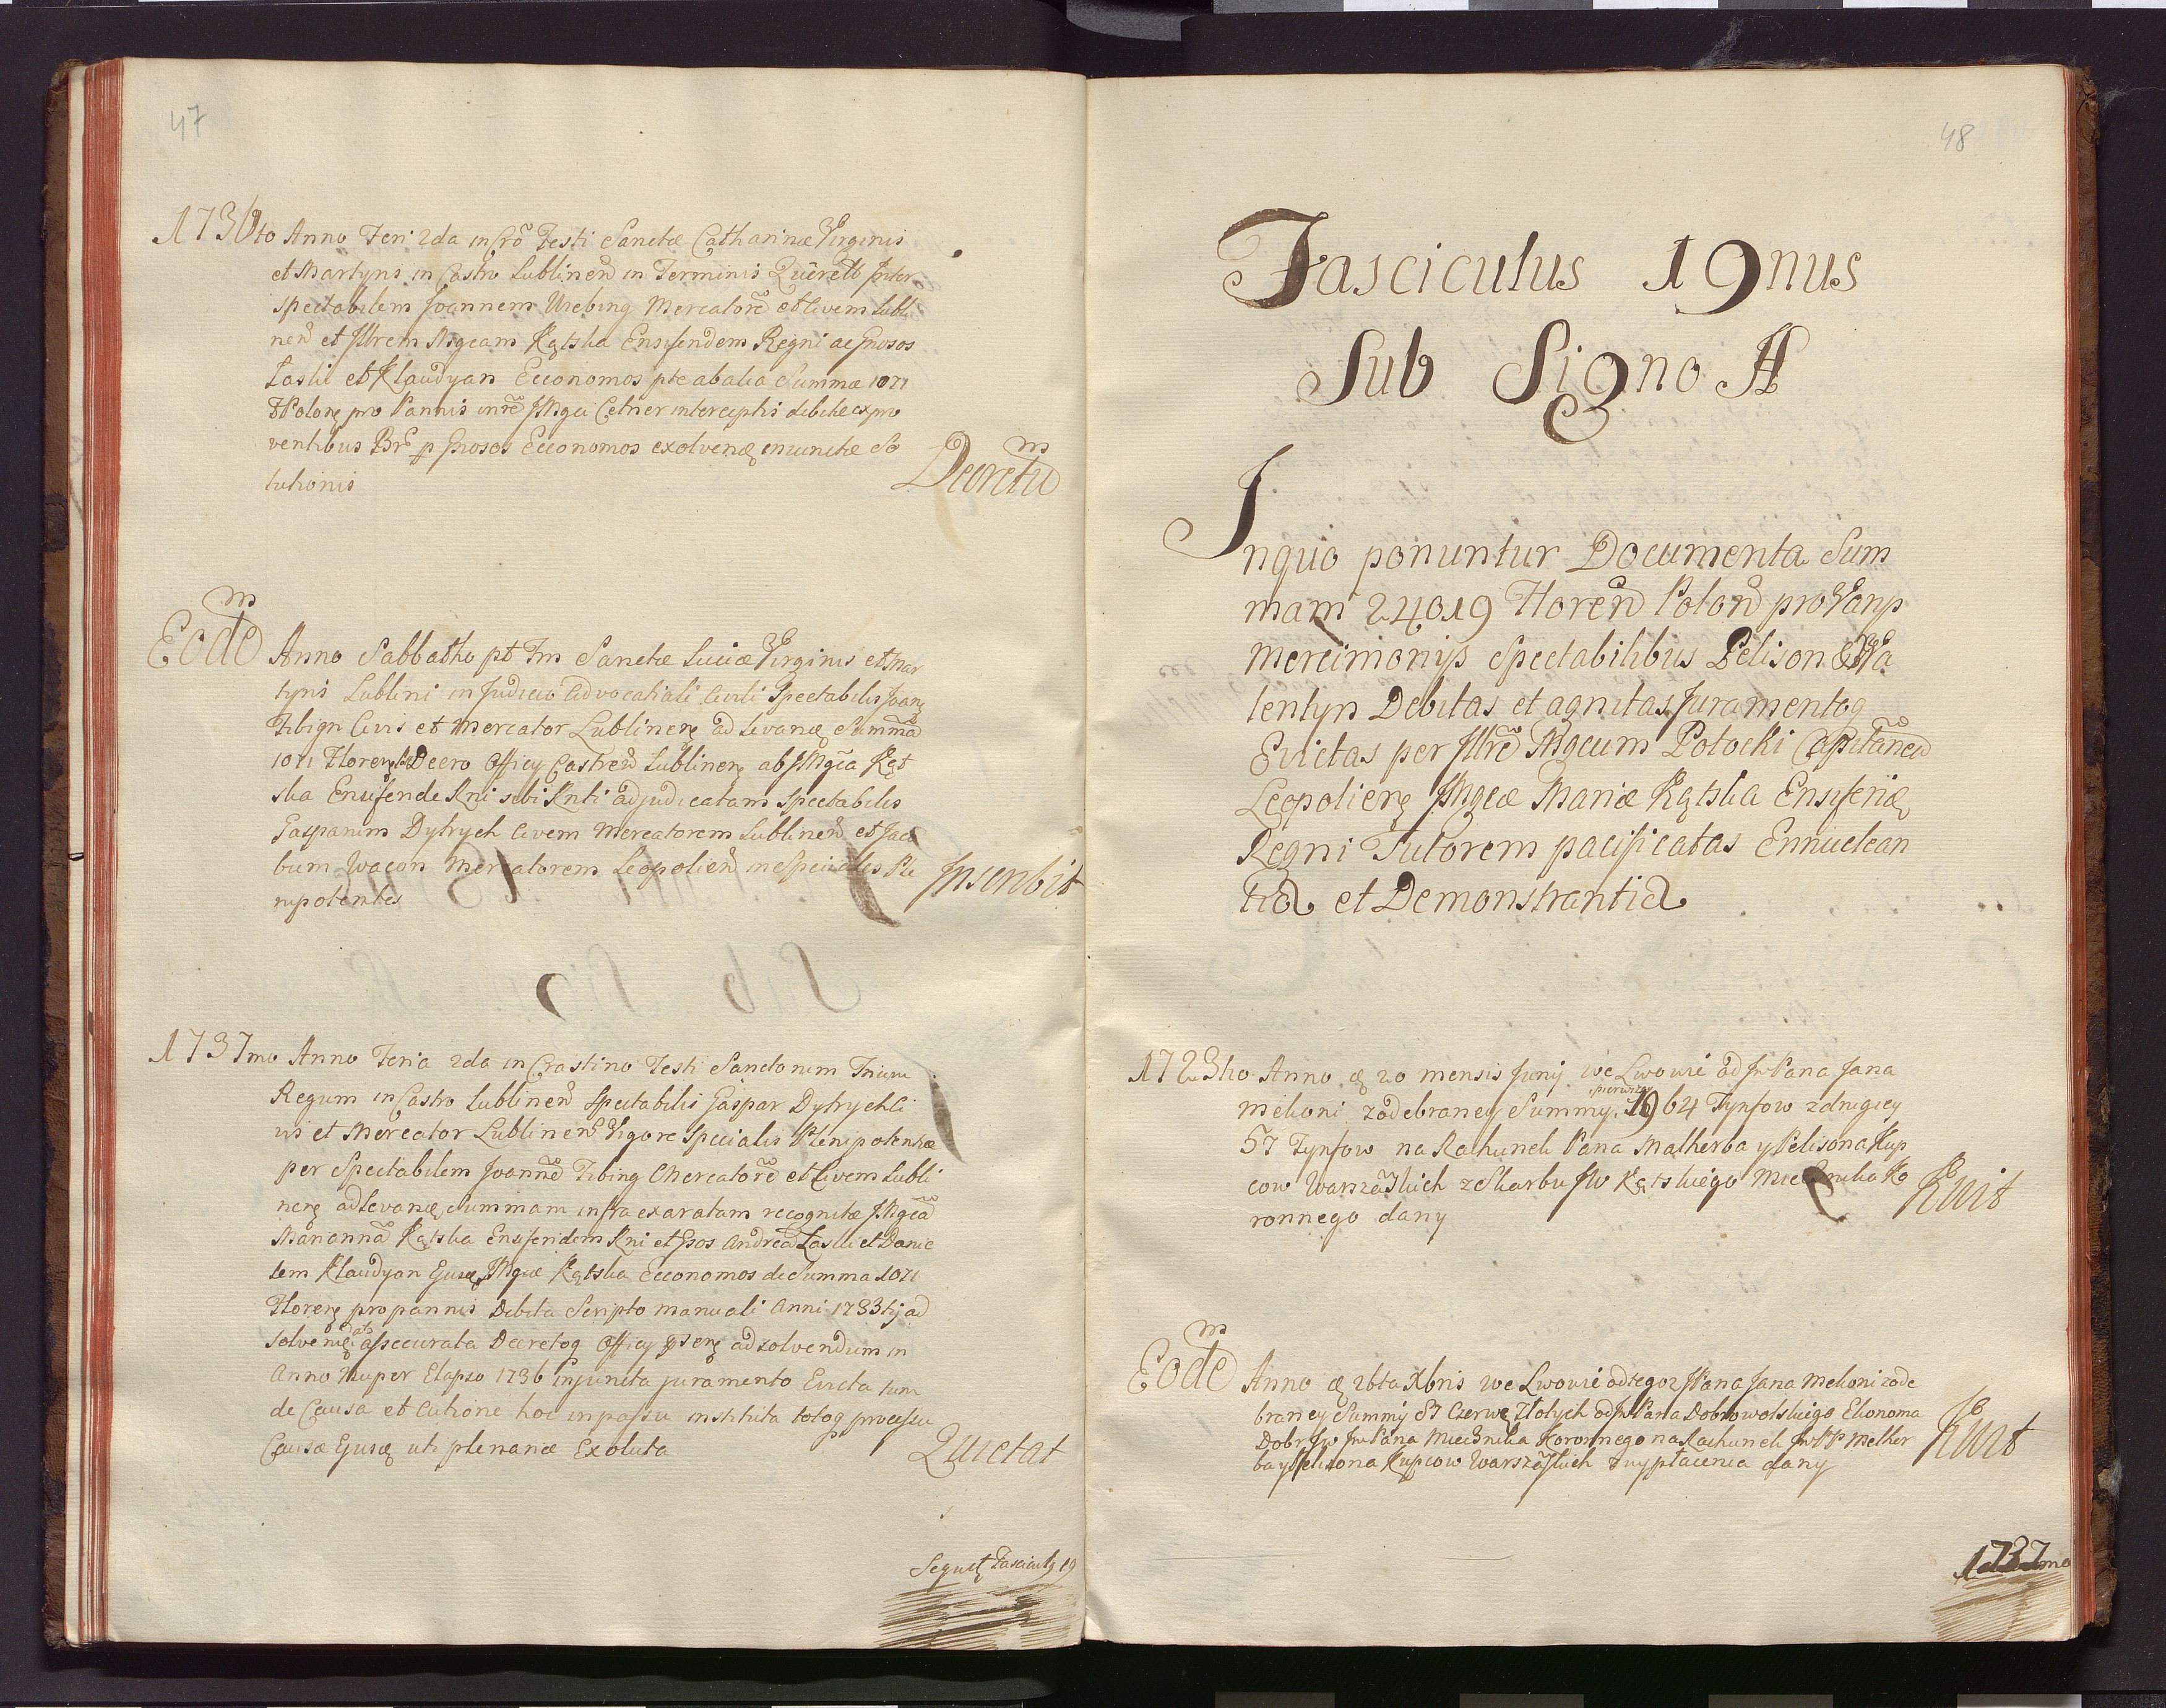 47
1736to Anno Feri 2da in Cro Festi Sanctæ Catharinæ Virginis
et Martyris in Castro Lublinen in Terminis Querell Inter
spectabilem Joannem Mercatorē et Civem Lubli
nen et Illrem Mgcam Kątska Ensiferidem Regni ac Gnosos
Łaski et Klaudyan Economos pte ab alia Summæ 1071
Polon pro Pannis in re JMgci Cetner interceptis debitæ ex pro
ventibus Br p Gnosos Economos exolven iniunctæ so
lutionis
Decretū
Eodē Anno Sabbatho pt Fm Sanctæ Luciæ Virginis et Mar
tyris Lublini in Judicio Advocatiali Civili Spectabilis Joan
Tibign Civis et Mercator Lublinen ad levan Summā
1071 Floren Decro Officy Castren Lublinen ab JMgca Kąt
ska Ensiferide Rni sibi Rnti adjudicatam Spectabilis
Gasparum Dytrych Civem Mercatorem Lublinen et Jaco
bum Wacon Mercatorem Leopolien in Speciales Ple
nipotentes
Inscribit
1737mo Anno Feria 2da in Crastino Festi Sanctorum Trium
Regum in Castro Lublinen Spectabilis Gaspar Dytrych Ci
vis et Mercator Lublinen Vigore Specialis Plenipotentiæ
per Spectabilem Joannē Tibing Mercatorē et Civem Lubli
nen ad levan summam infra exaratam recognitæ JMgcā
Mariannā Kątska Ensiferidem Rni et Gsos Andreā Łaski et Danie
lem Klaudyan Ejusq JMgcæ Kątska Economos de Summa 1071
Floren pro pannis Debita Scripto manuali Anni 1733tij ad
solven dato assecurata Decretoq Officy psen adsolvendum in
Anno Nuper Elapso 1736 injuncta juramento Evicta tum
de Causa et Actione hoc in passu instituta totoq processu
Causæ Ejusq uti plenariæ Exoluta
Quietat
Sequit Fascicul 19
48
Fasciculus 19nus
Sub Signo A
In quo ponuntur Documenta Sum
mam 24019 Floren Polon pro Varys
mercimonijs Spectabilibus Pelison & Wa
lentyn Debitas et agnitas Juramentoq
Evictas per Illrē Mgcum Potocki Capitaneū
Leopolien JMgcæ Mariæ Kątska Ensiferidæ
Regni Tutorem pacificatas Ennuclean
tia et Demonstrantia
1723tio Anno d 20 mensis Junij we Lwowie od Jw Pana Jana
Melioni zodebraney Summy pierwszey 1964 Tynfow zdrugiey
57 Tynfow na Rachunek Pana Malherba y Pelisona Kup
cow Warszawskich z Skarbu JW Kątskiego Miecznika Ko
ronnego dany
Kwit
Eodē Anno d 26ta Xbris we Lwowie od tegoz JPana Jana Melioni zode
braney Summy 87 Czerw Złotych od Jw Pana Dobrowolskiego Ekonoma
Dobr Jw Jw Pana Miecznika Koronnego na Rachunek Jw PP Melher
ba y Pelisona Kupcow Warszawskich wypłacenia dany
Kwit
1737mo